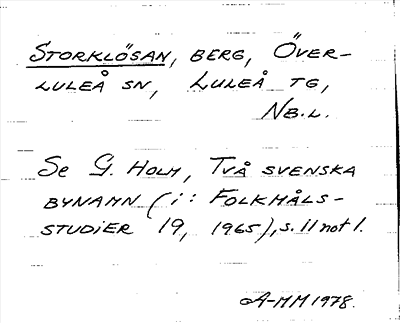 STORKLÖSAN, BERG, ÖVER-
LULEÅ SN, LULEÅ TG,
NB.L.
Se G. HOLM, TVÅ SVENSKA
BYNAMN (i: FOLKMÅLS-
STUDIER 19, 1965), s. 11 not 1.
A-MM 1978.